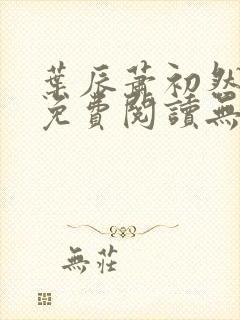 葉辰蕭初然
免費閱讀無
無莊